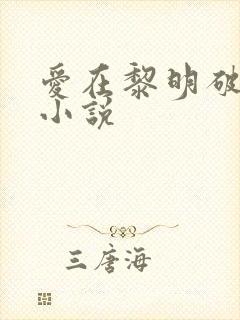 愛在黎明破
小說
三唐海